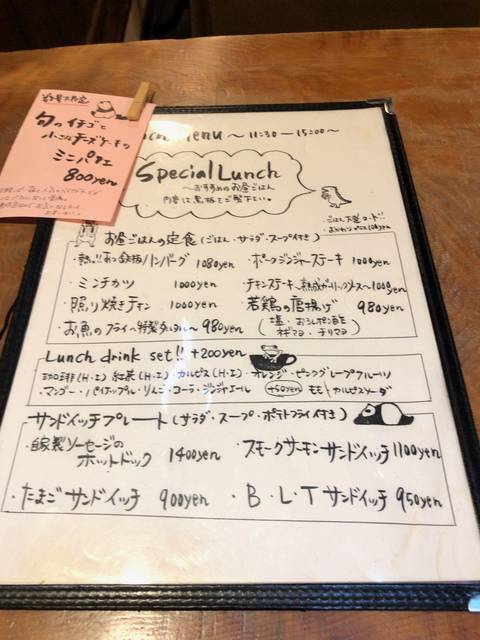 旬のイチゴと
小さなチーズケーキの
ミニパフェ
800yen
Menu ~ 11:30 — 15:00~
Special Lunch
~おすすめのお昼ごはん
内容は黒板をご覧下さい。
お昼ごはんの定食(ごはん・サラダ・スープ付き)
・熱々!!あつ鉄板ハンバーグ 1080yen
・ポークジンジャーステーキ 1000yen
・ミンチカツ 1000yen
・チキンステーキ~熟成ガーリックソース~1000yen
・照り焼きチキン 1000yen
・若鶏の唐揚げ 980yen
(・塩・おろしポン酢
・ネギマヨ・チリマヨ)
・お魚のフライ~特製タルタル~980yen
Lunch drink set!! +200yen
珈琲(H・I)紅茶(H・I)・カルピス(H・I)・オレンジ・ピンクグレープフルーツ
・マンゴー・パイナップル・りんご・コーラ・ジンジャエール +50yen もも・カルピスソーダ
サンドイッチプレート(サラダ・スープ・ポテトフライ付き)
・自家製ソーセージの
ホットドック 1400yen
・スモークサーモンサンドイッチ 1100yen
・たまごサンドイッチ 900yen
・B・L・Tサンドイッチ 950yen